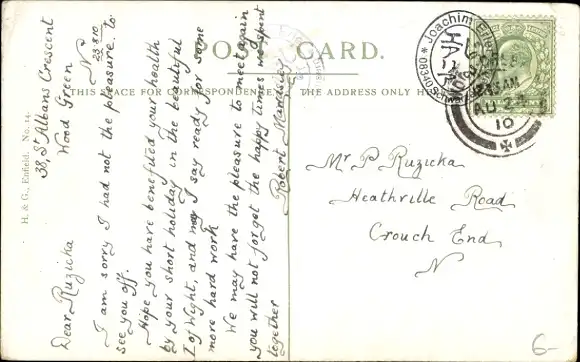 POST CARD.
THIS PLACE FOR CORRESPONDENCE
THE ADDRESS ONLY H
H. & G., Enfield. No. 14.
38, St Albans Crescent
Wood Green
N
23.8.10
Dear Ruzicka
I am sorry I had not the pleasure to
see you off.
Hope you have benefited your health
by your short holiday in the beautiful
I of Wight, and may I say ready for some
more hard work
We may have the pleasure to meet again
you will not forget the happy times we spent
together
Robert
Mr P Ruzicka
Heathville Road
Crouch End
N
Joachim
AU 24
10
6-